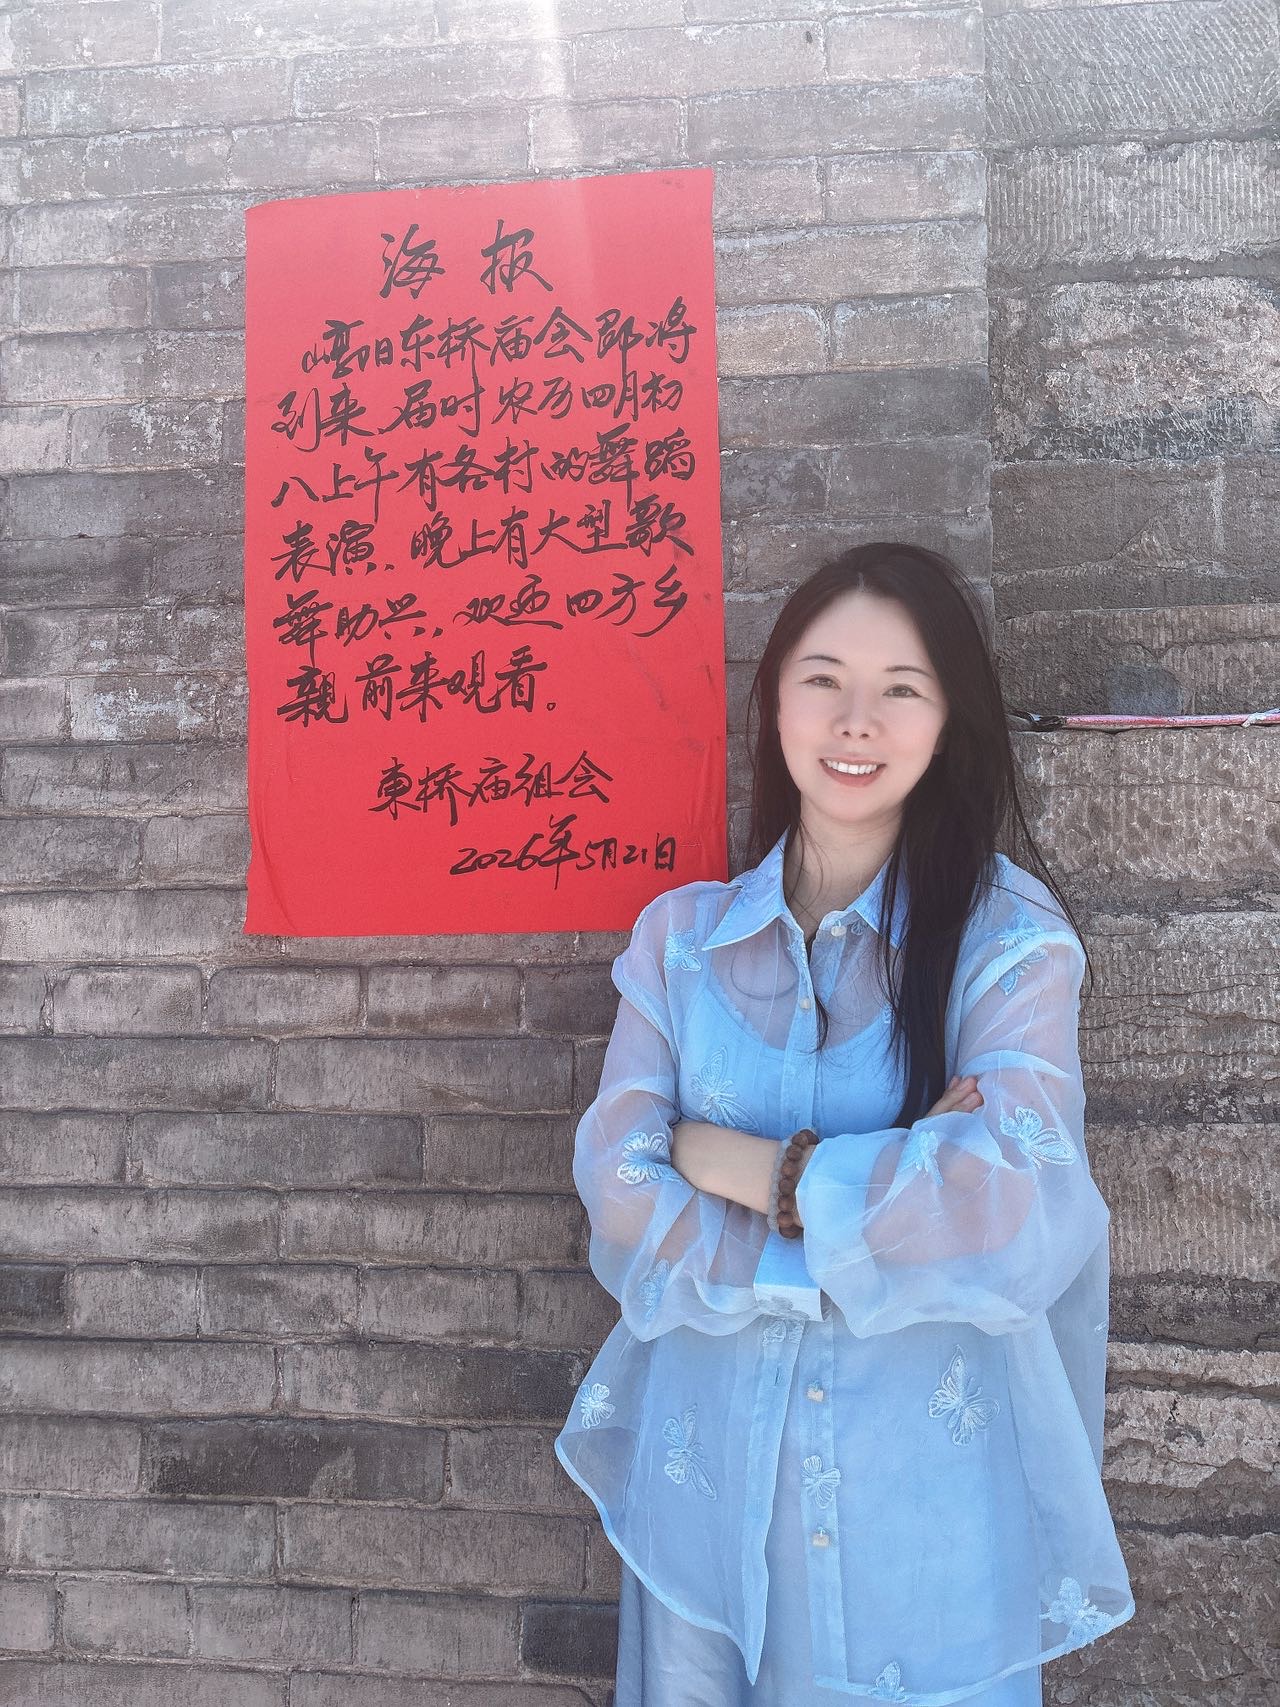 海报
崞阳东桥庙会即将
到来,届时农历四月初
八上午有各村的舞蹈
表演,晚上有大型歌
舞助兴,欢迎四方乡
親前来观看。
東桥庙组会
2026年5月21日